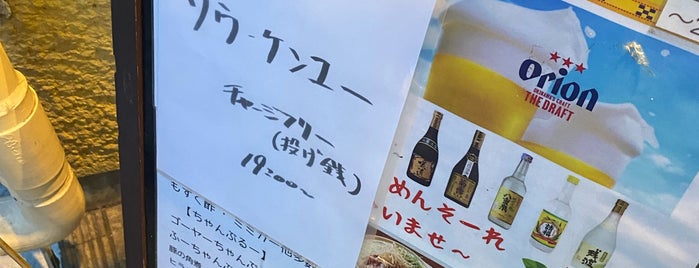 リウ・ケンユー
チャージフリー
(投げ銭)
19:00～
もずく酢・ミミガー他多数
【ちゃんぷるー】
ゴーヤーちゃんぷ
ふーちゃんぷ
豚の角煮
ヒラ
Orion
OKINAWA CRAFT
THE DRAFT
めんそーれ
いませ～
残波